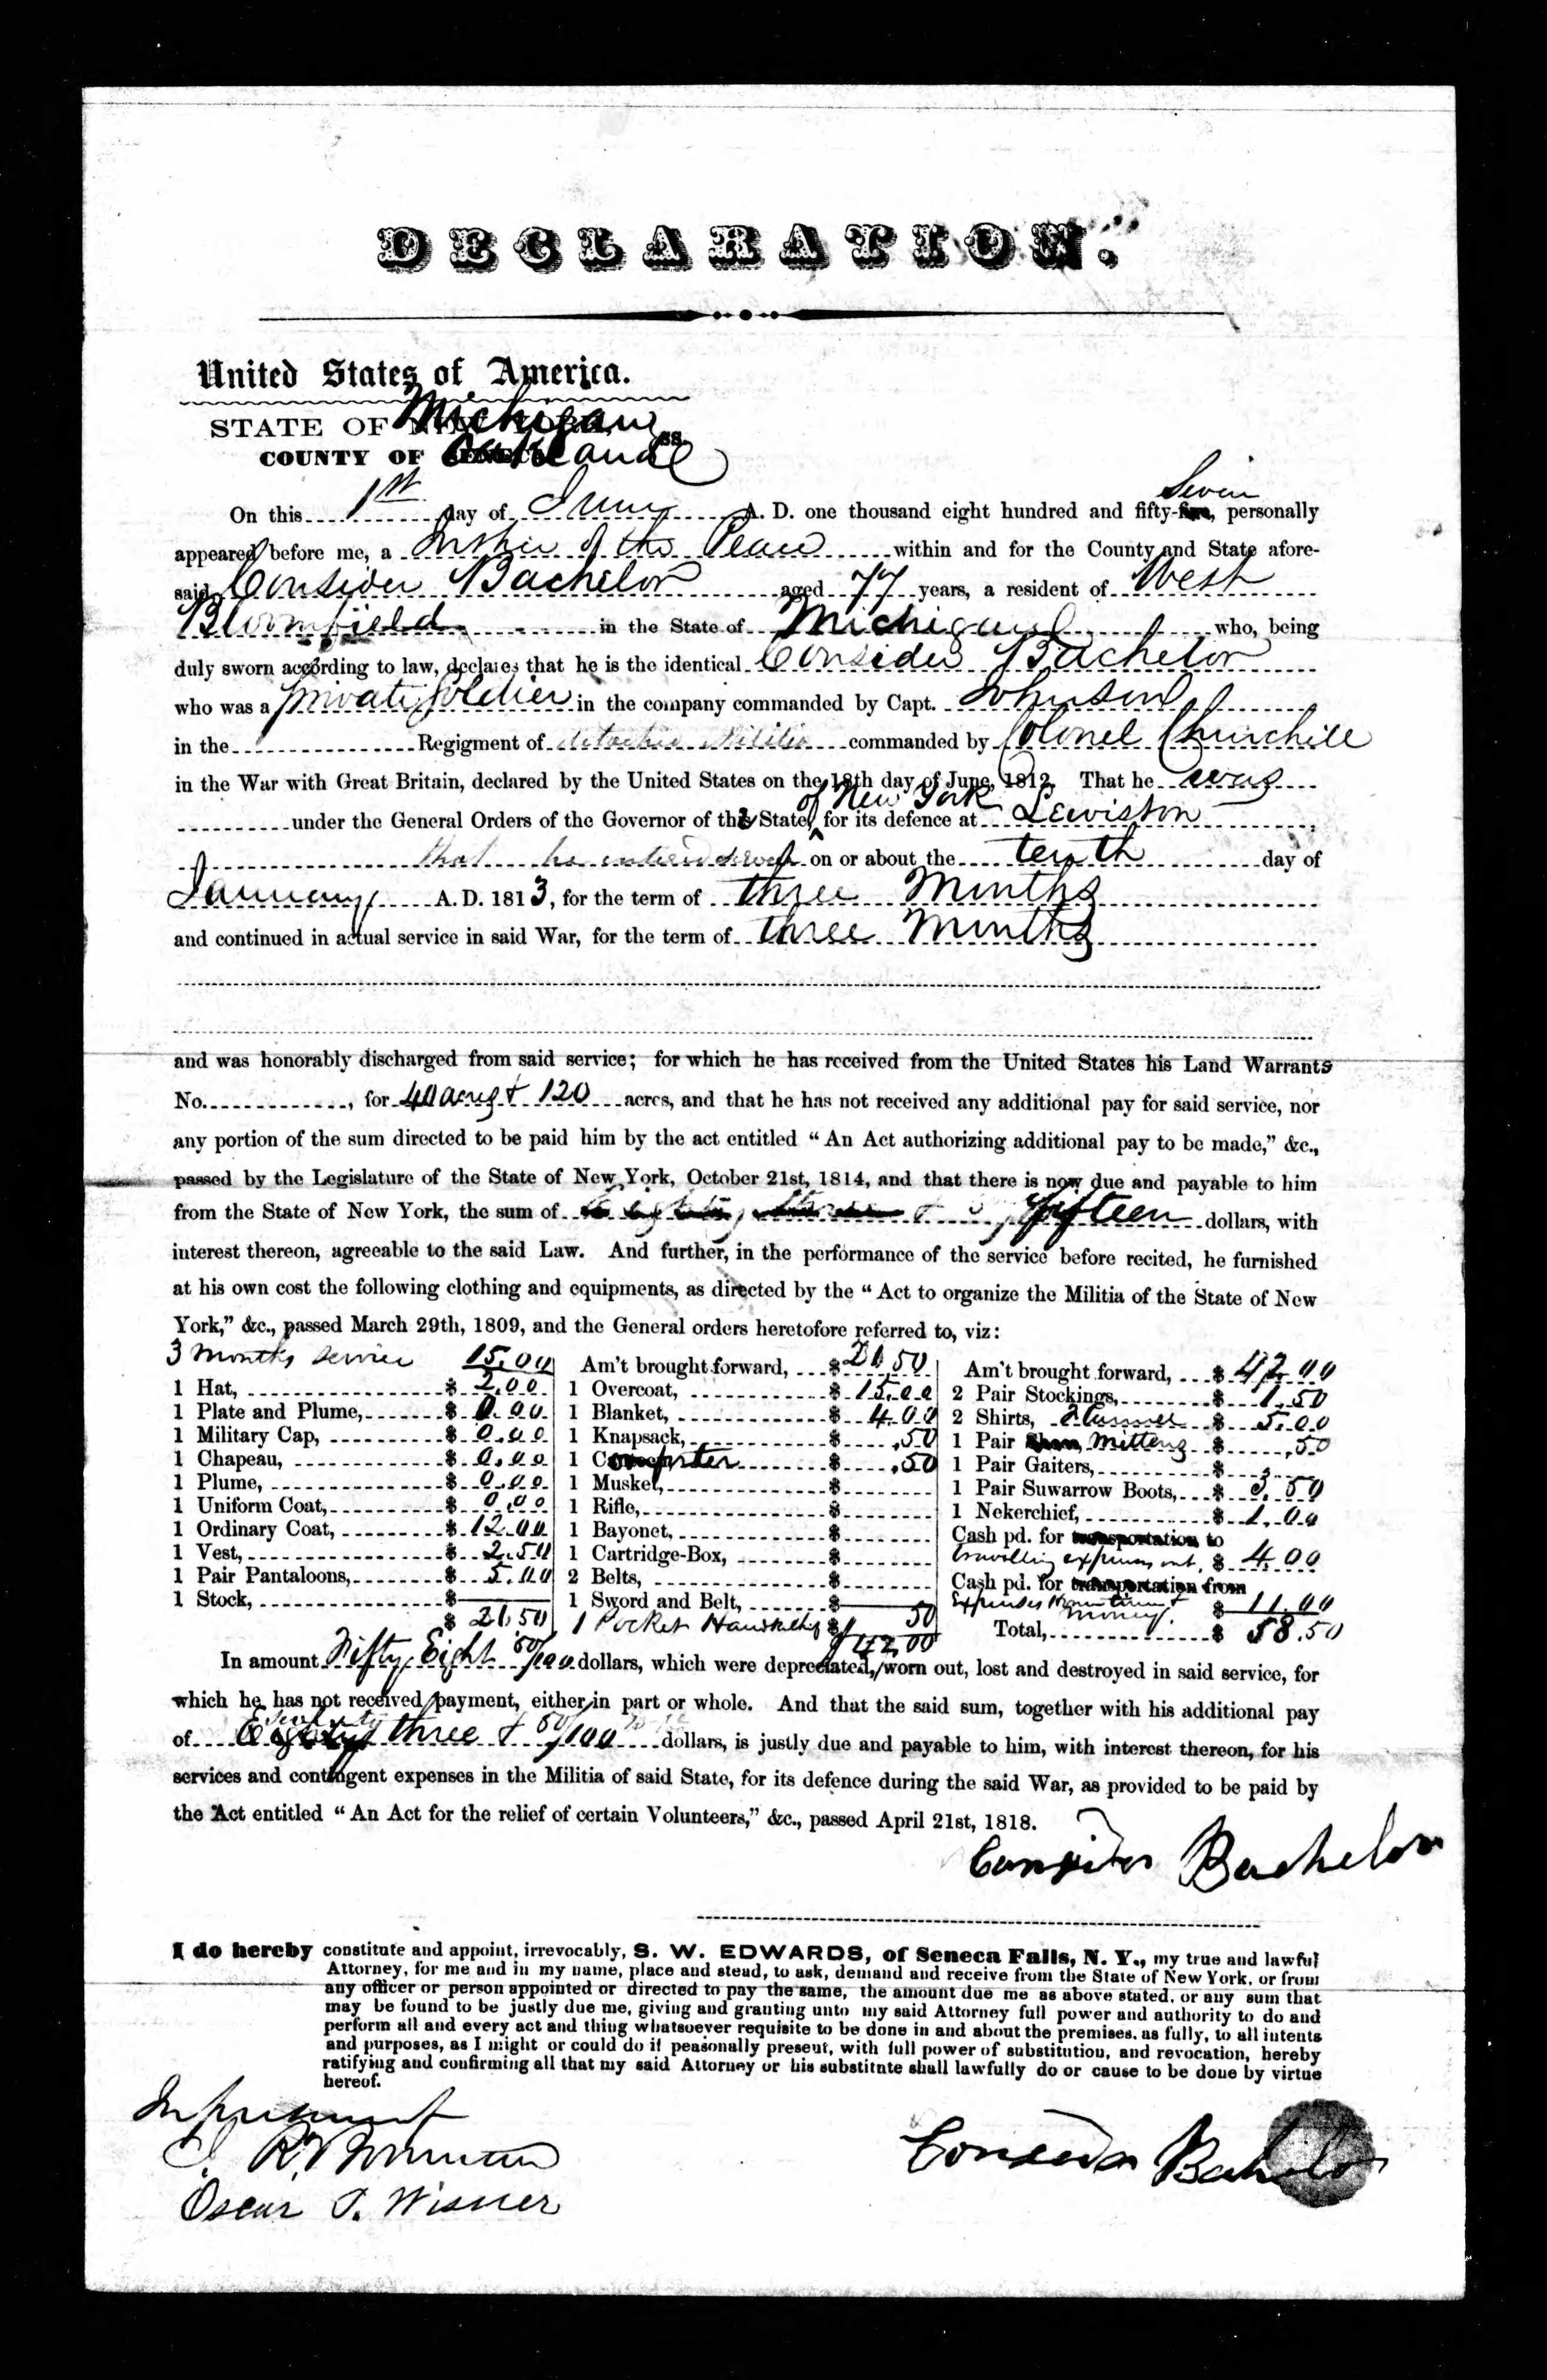 DECLARATION.
United States of America.
STATE OF Michigan
COUNTY OF Oakland ss.
On this 1st day of June A. D. one thousand eight hundred and fifty-Seven, personally
appeared before me, a Justice of the Peace within and for the County and State afore-
said Consider Bachelor aged 77 years, a resident of West
Bloomfield in the State of Michigan who, being
duly sworn according to law, declares that he is the identical Consider Bachelor
who was a private soldier in the company commanded by Capt. Johnson
in the Regigment of detached Militia commanded by Colonel Churchill
in the War with Great Britain, declared by the United States on the 18th day of June, 1812. That he was
under the General Orders of the Governor of the State of New York for its defence at Lewiston
that he entered on or about the tenth day of
January A. D. 1813, for the term of three Months
and continued in actual service in said War, for the term of three Months
and was honorably discharged from said service; for which he has received from the United States his Land Warrants
No. , for 40 acres & 120 acres, and that he has not received any additional pay for said service, nor
any portion of the sum directed to be paid him by the act entitled “An Act authorizing additional pay to be made,” &c.,
passed by the Legislature of the State of New York, October 21st, 1814, and that there is now due and payable to him
from the State of New York, the sum of fifteen dollars, with
interest thereon, agreeable to the said Law. And further, in the performance of the service before recited, he furnished
at his own cost the following clothing and equipments, as directed by the “Act to organize the Militia of the State of New
York,” &c., passed March 29th, 1809, and the General orders heretofore referred to, viz:
3 Months service 15.00
1 Hat, $ 2.00
1 Plate and Plume, $ 0.00
1 Military Cap, $ 0.00
1 Chapeau, $ 0.00
1 Plume, $ 0.00
1 Uniform Coat, $ 0.00
1 Ordinary Coat, $ 12.00
1 Vest, $ 2.50
1 Pair Pantaloons, $ 5.00
1 Stock, $
$ 21.50
Am't brought forward, $ 21 50
1 Overcoat, $ 15.00
1 Blanket, $ 4.00
1 Knapsack, $ .50
1 Comforter $ .50
1 Musket, $
1 Rifle, $
1 Bayonet, $
1 Cartridge-Box, $
2 Belts, $
1 Sword and Belt, $
1 Pocket Handkerchief $ 50
$ 42.00
Am't brought forward, $ 42.00
2 Pair Stockings, $ 1.50
2 Shirts, $ 5.00
1 Pair Mittens $ .50
1 Pair Gaiters, $
1 Pair Suwarrow Boots, $ 3.50
1 Nekerchief, $ 1.00
Cash pd. for transportation to
travelling expenses out, $ 4.00
Cash pd. for transportation from
Expenses money. $ 11.00
Total, $ 58.50
In amount Fifty Eight 50/100 dollars, which were depreciated, worn out, lost and destroyed in said service, for
which he has not received payment, either in part or whole. And that the said sum, together with his additional pay
of Seventy three & 50/100 dollars, is justly due and payable to him, with interest thereon, for his
services and contingent expenses in the Militia of said State, for its defence during the said War, as provided to be paid by
the Act entitled “An Act for the relief of certain Volunteers,” &c., passed April 21st, 1818.
Consider Bachelor
I do hereby constitute and appoint, irrevocably, S. W. EDWARDS, of Seneca Falls, N. Y., my true and lawful
Attorney, for me and in my name, place and stead, to ask, demand and receive from the State of New York, or from
any officer or person appointed or directed to pay the same, the amount due me as above stated, or any sum that
may be found to be justly due me, giving and granting unto my said Attorney full power and authority to do and
perform all and every act and thing whatsoever requisite to be done in and about the premises, as fully, to all intents
and purposes, as I might or could do if peasonally present, with full power of substitution, and revocation, hereby
ratifying and confirming all that my said Attorney or his substitute shall lawfully do or cause to be done by virtue
hereof.
In presence of
Consider Bachelor
Oscar T. Wisner